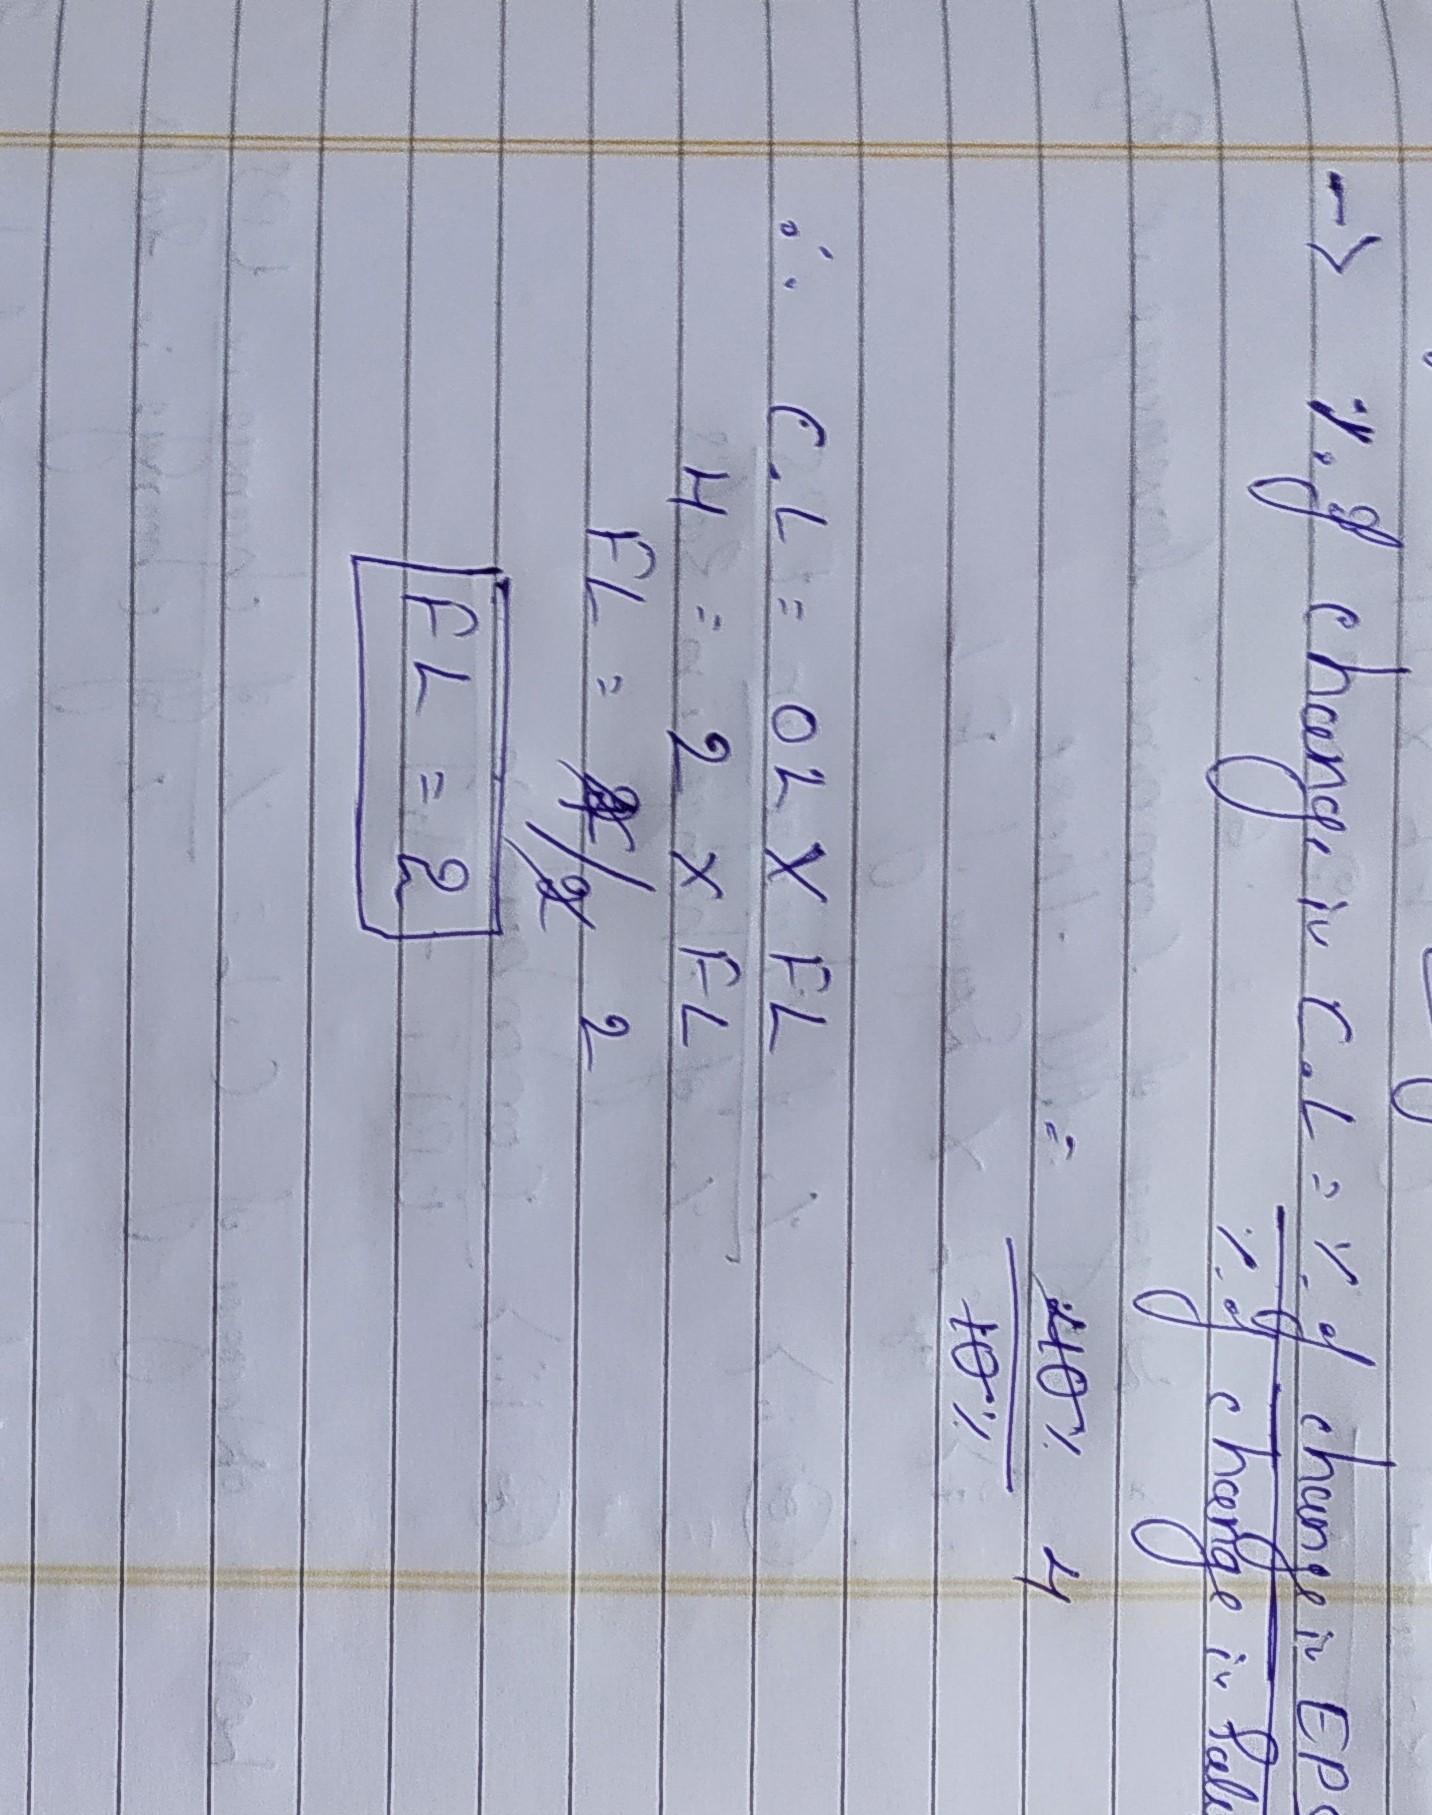 → %.g change in C.L = %.g change in EPS
%.g change in Sale
= 40% 4
10%
∴ C.L = OL X FL
4 = 2 X FL
FL = 4/2 2
FL = 2